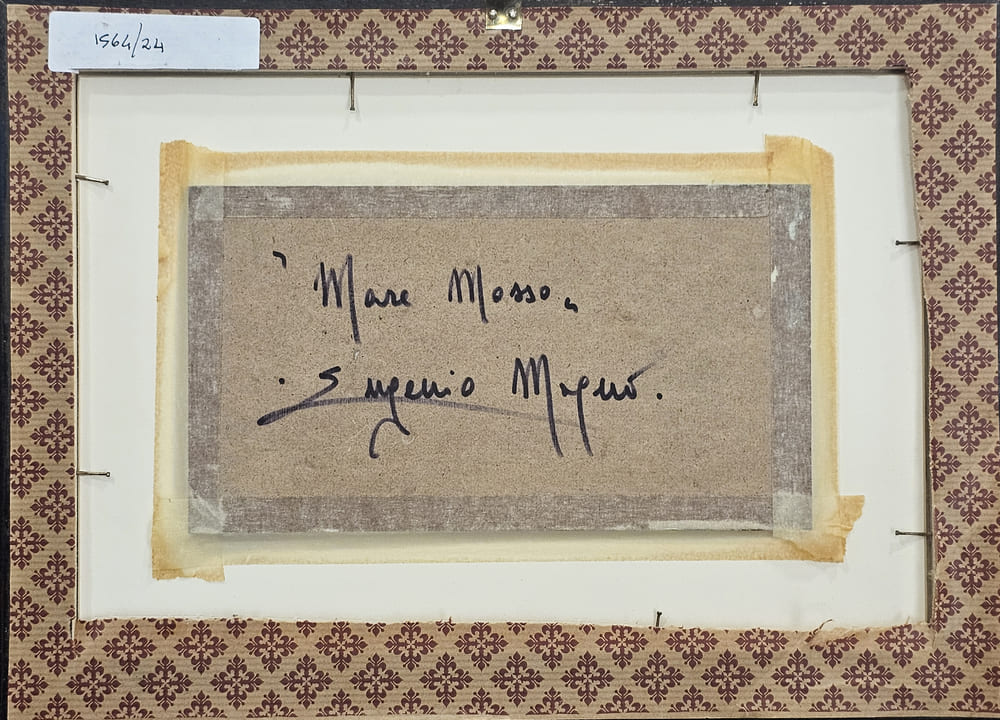 1564/24
"Mare Mosso"
Eugenio Magno.